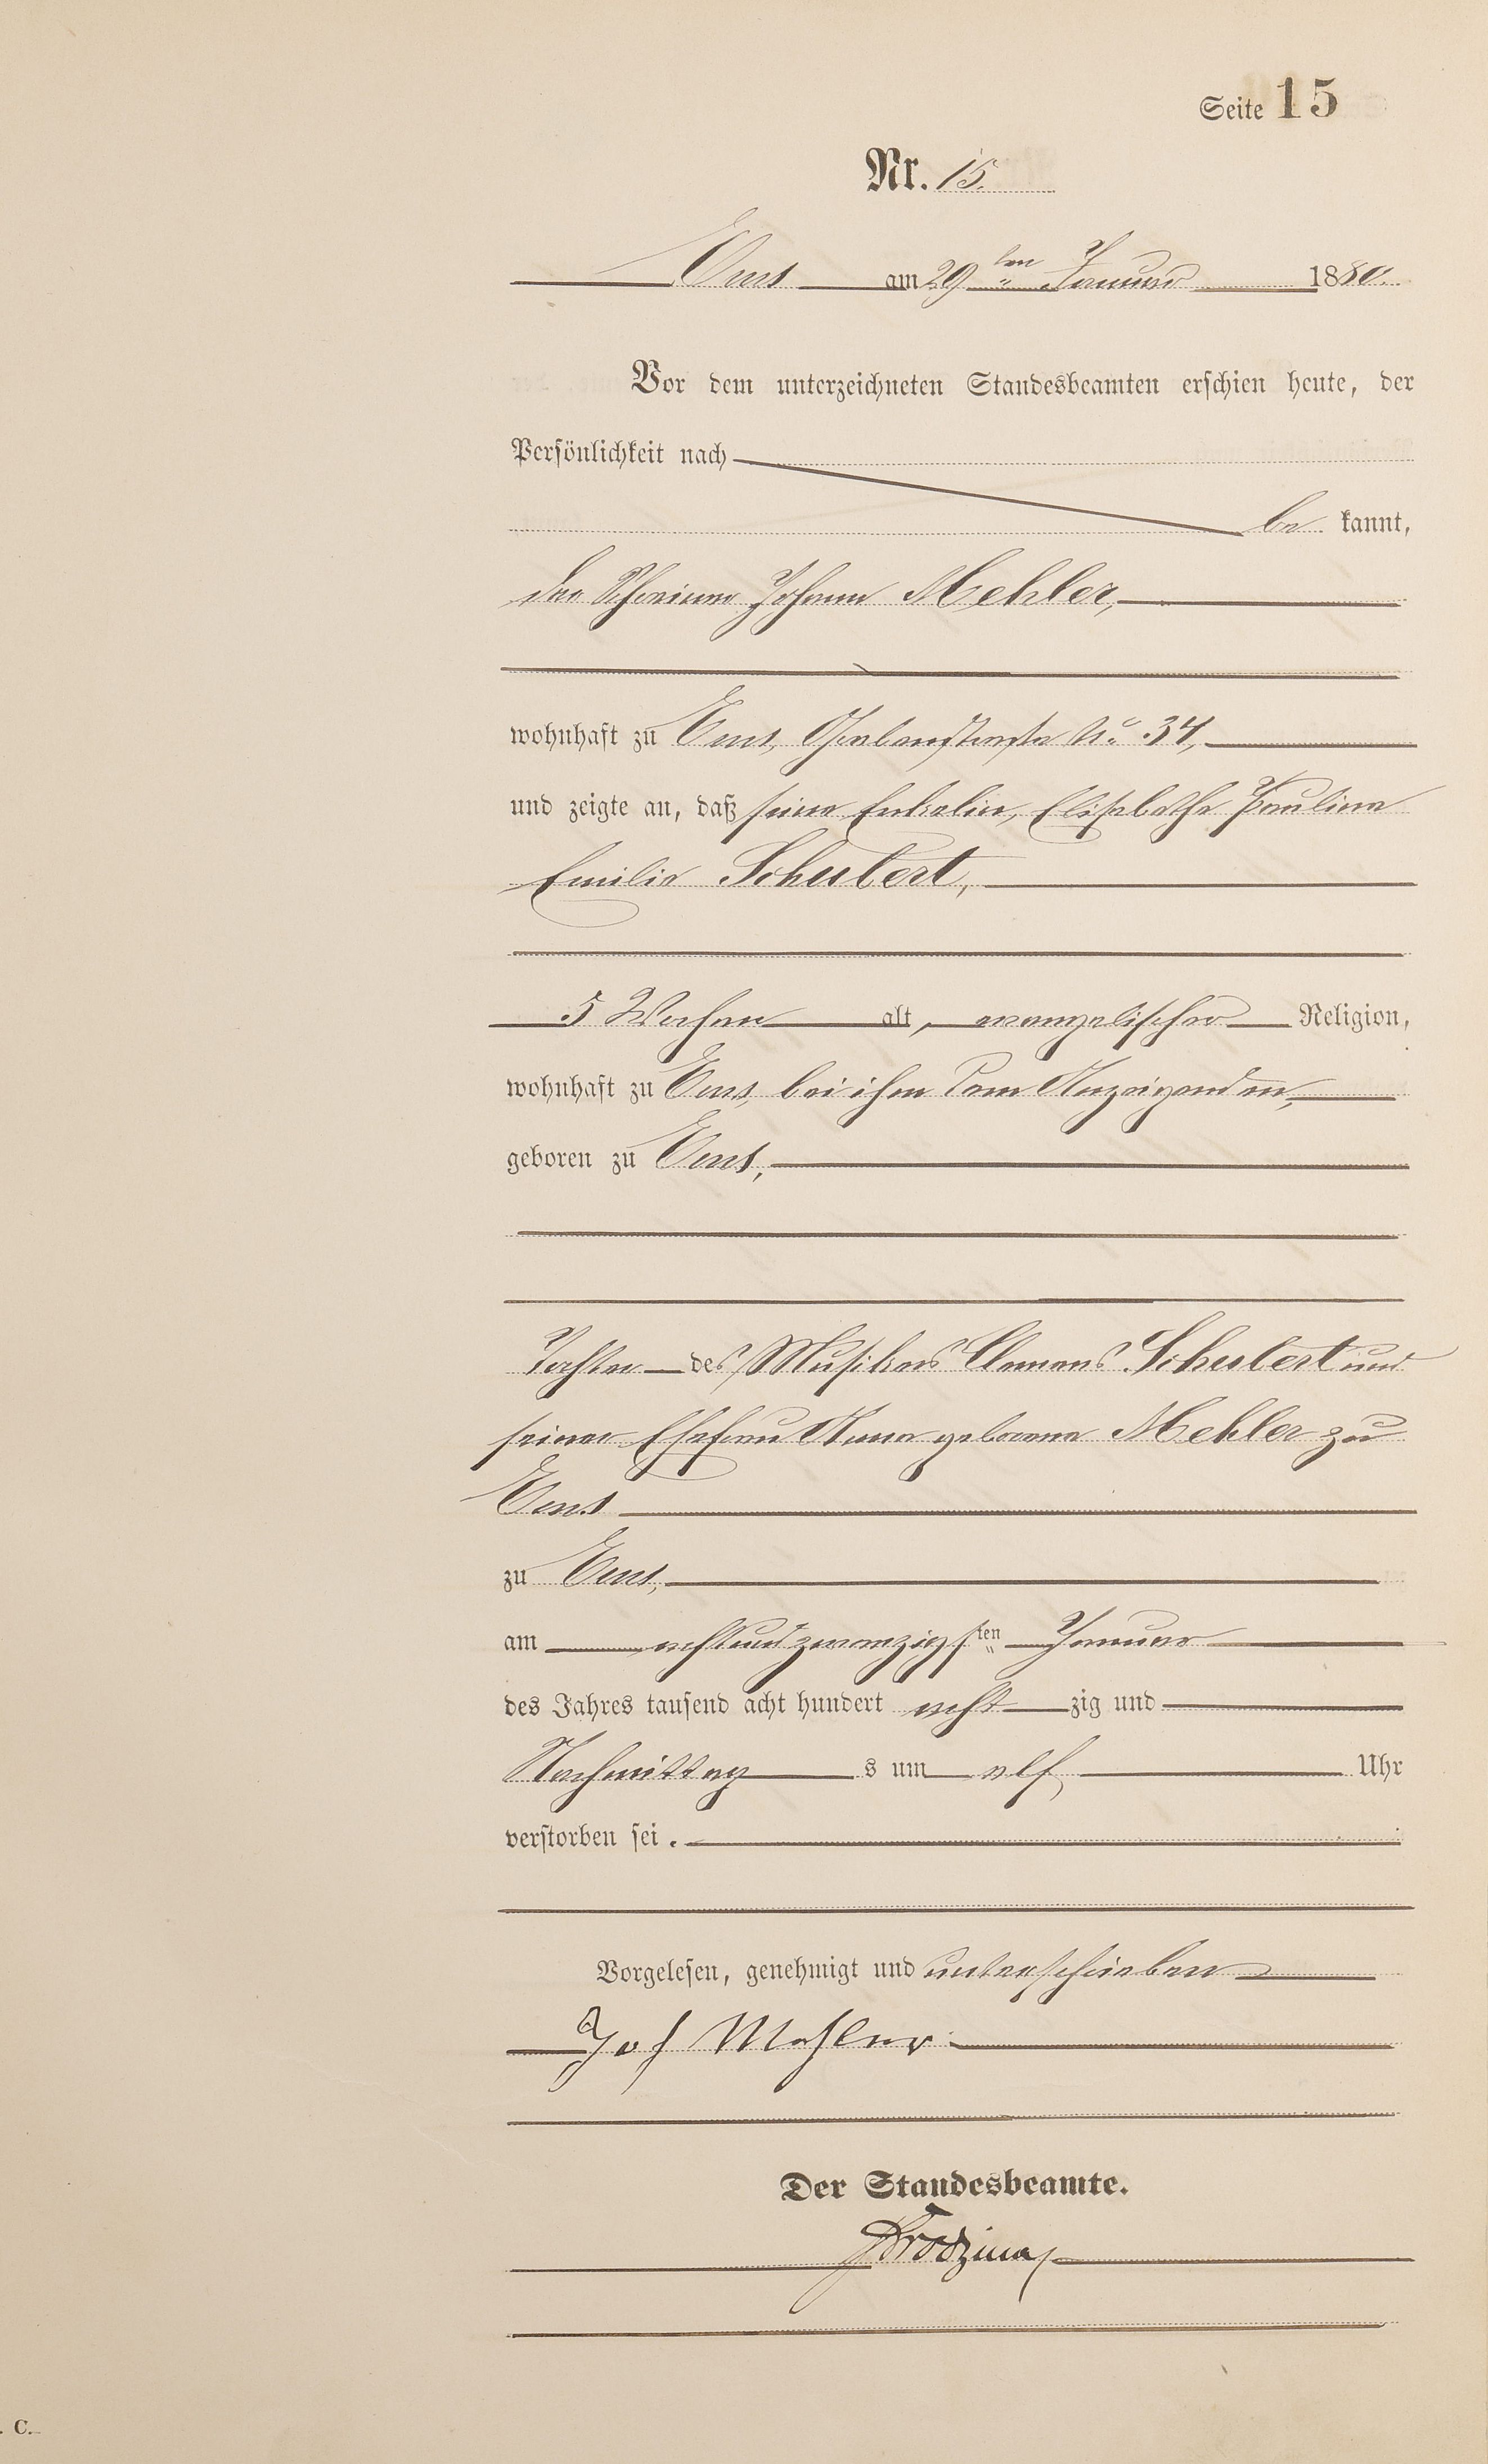 Seite 15
Nr. 15.
Ems am 29ten Januar 1880.
Vor dem unterzeichneten Standesbeamten erschien heute, der
Persönlichkeit nach
be kannt,
der Schreiner Johann Mehler,
wohnhaft zu Ems, No. 34,
und zeigte an, daß seine Enkelin, Elisabethe Pauline
Emilie Schubert,
5 Wochen alt, evangelischer Religion,
wohnhaft zu Ems, bei ihm dem Anzeigenden,
geboren zu Ems,
Tochter des Musikers Clemens Schubert und
seiner Ehefrau Anna geborene Mehler zu
Ems
zu Ems,
am achtundzwanzigsten Januar
des Jahres tausend acht hundert acht zig und
Nachmittag s um elf Uhr
verstorben sei.
Vorgelesen, genehmigt und unterschrieben
Joh Mehler
Der Standesbeamte.
. C.